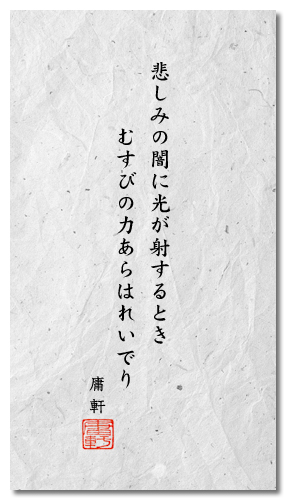 悲しみの闇に光が射するとき
むすびの力あらはれいでり
庸軒